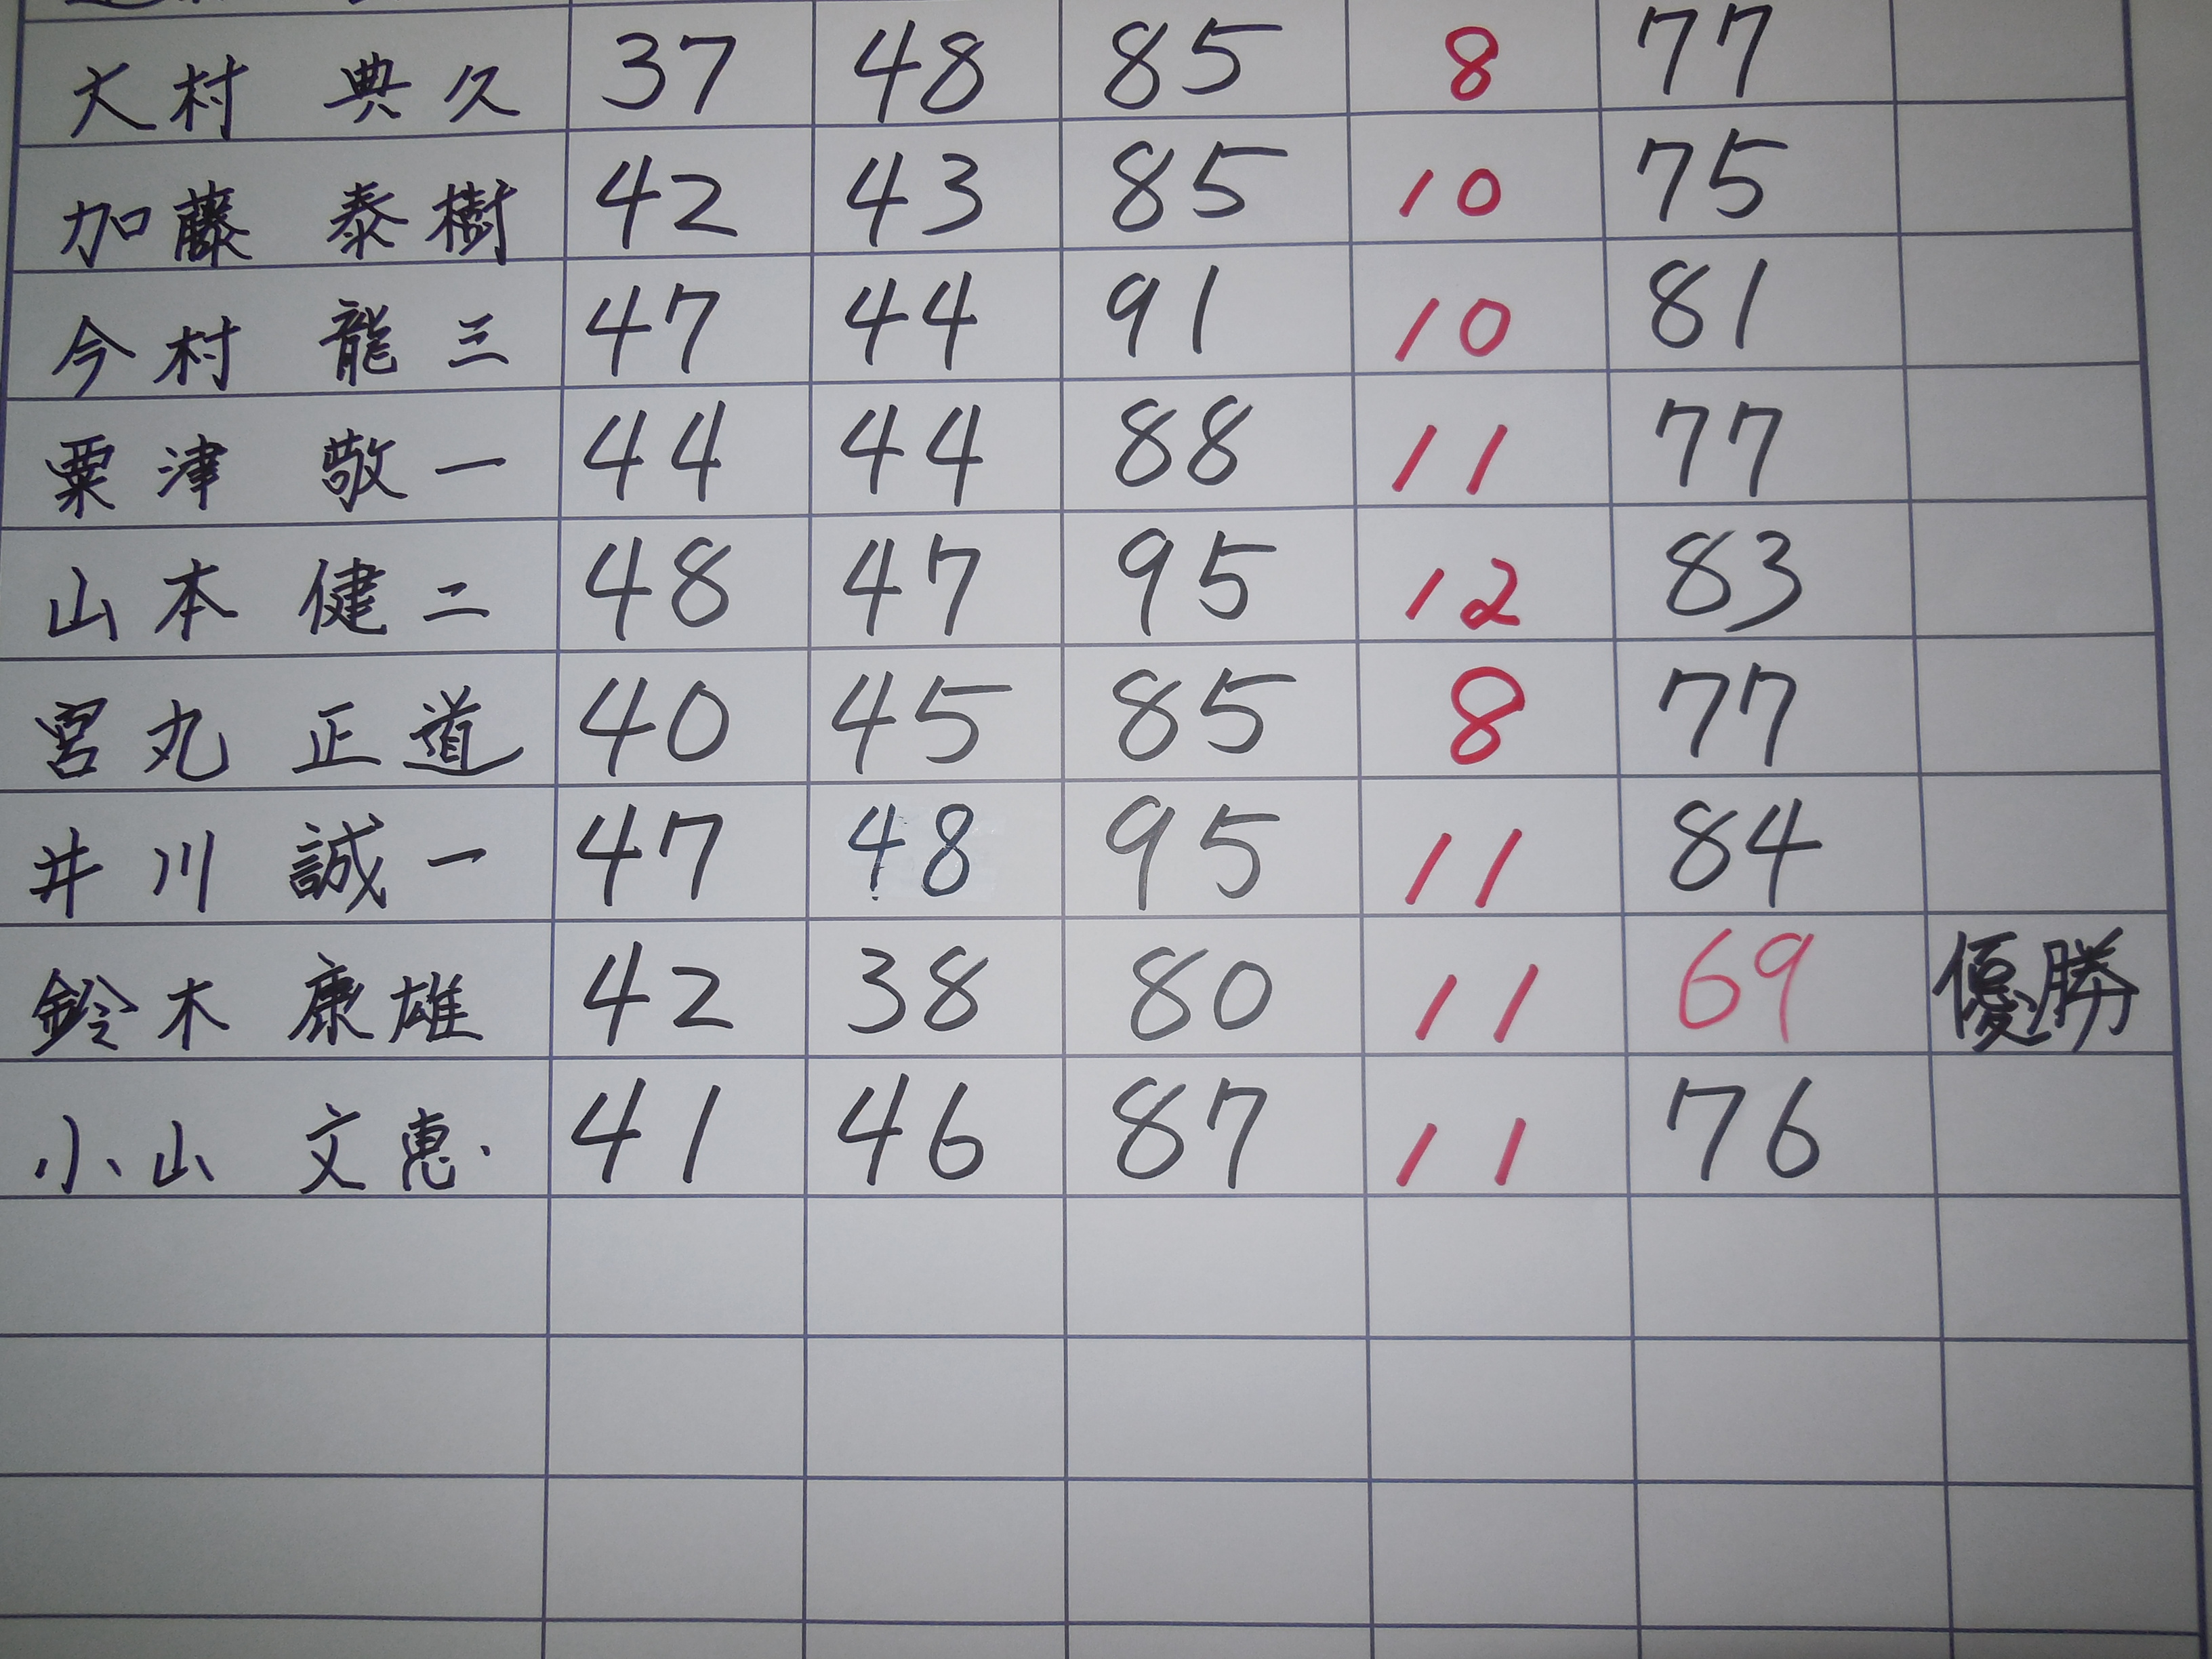 大村 典久 37 48 85 8 77
加藤 泰樹 42 43 85 10 75
今村 龍三 47 44 91 10 81
粟津 敬一 44 44 88 11 77
山本 健二 48 47 95 12 83
宮丸 正道 40 45 85 8 77
井川 誠一 47 48 95 11 84
鈴木 康雄 42 38 80 11 69 優勝
小山 文恵 41 46 87 11 76